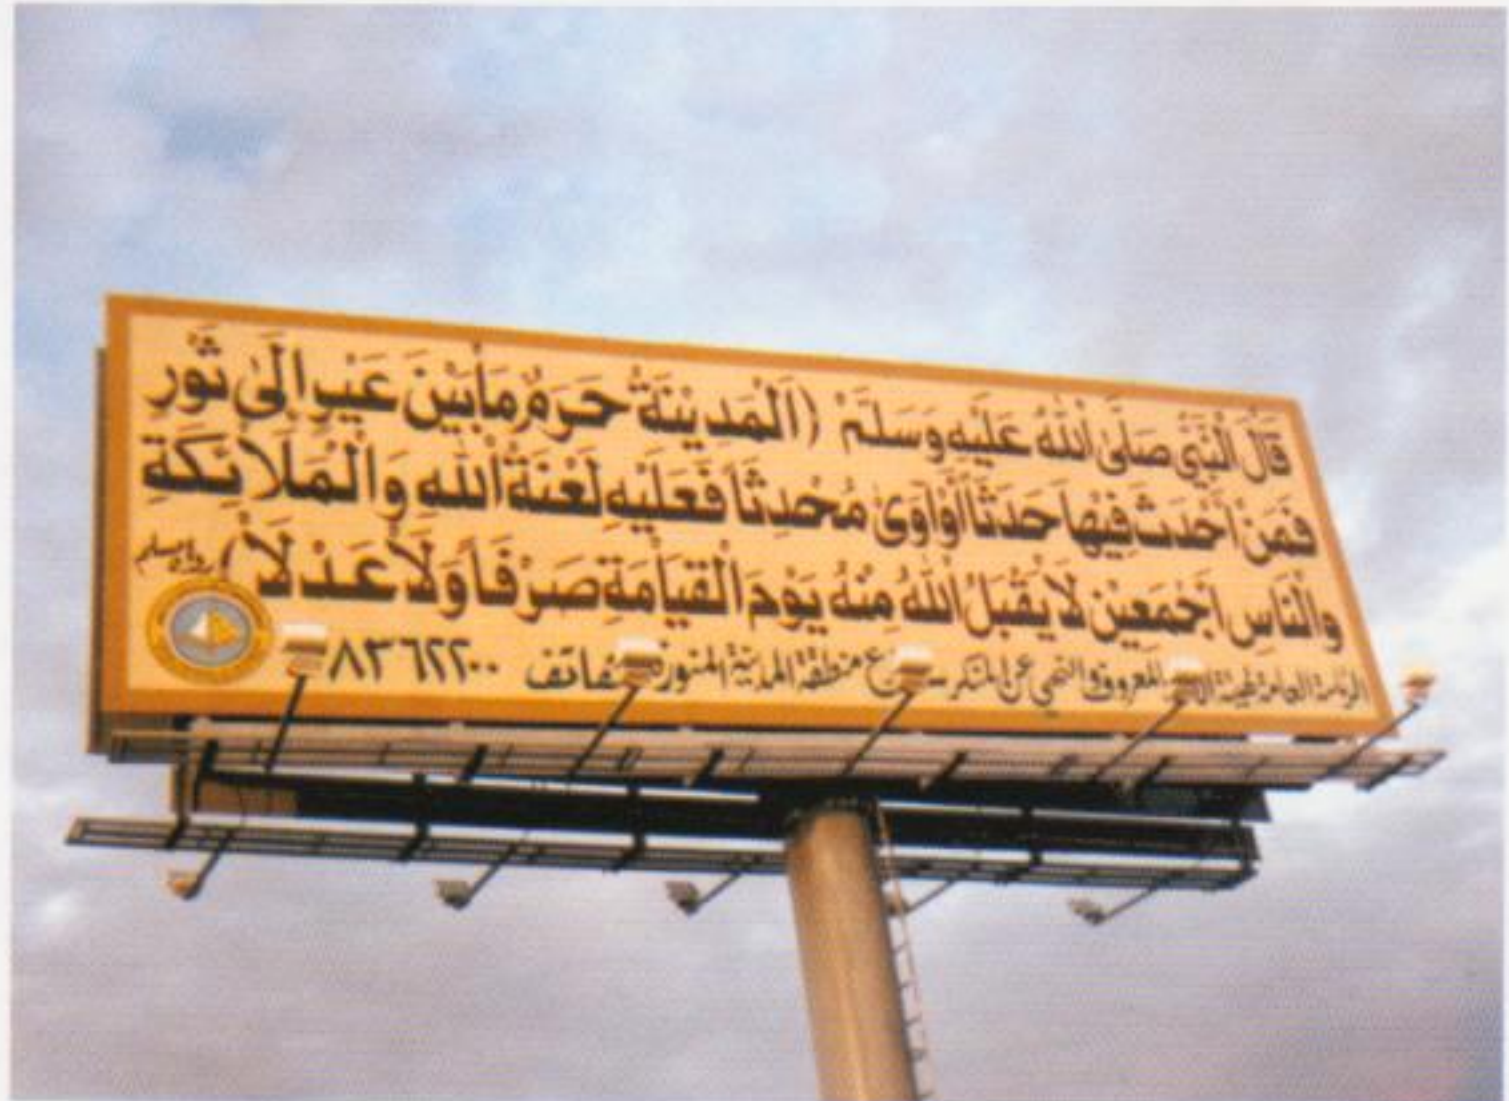 قَالَ النَّبِيُّ صَلَّى اللَّهُ عَلَيْهِ وَسَلَّمْ (اَلْمَدِينَةُ حَرَمٌ مَابَيْنَ عَيْرٍ إِلَى ثَوْرٍ
فَمَنْ أَحْدَثَ فِيْهَا حَدَثَاً أَوْ آوَى مُحْدِثَاً فَعَلَيْهِ لَعْنَةُ اللهِ وَالْمَلَائِكَةِ
وَالنَّاسِ أَجْمَعِيْنَ لَا يَقْبَلُ اللَّهُ مِنْهُ يَوْمَ الْقِيَامَةِ صَرْفَاً وَلَا عَدْلَاً) رواه مسلم
الرئاسة العامة لهيئة المعروف والنهي عن المنكر منطقة المدينة المنورة هاتف ٨٣٦٢٢٠٠